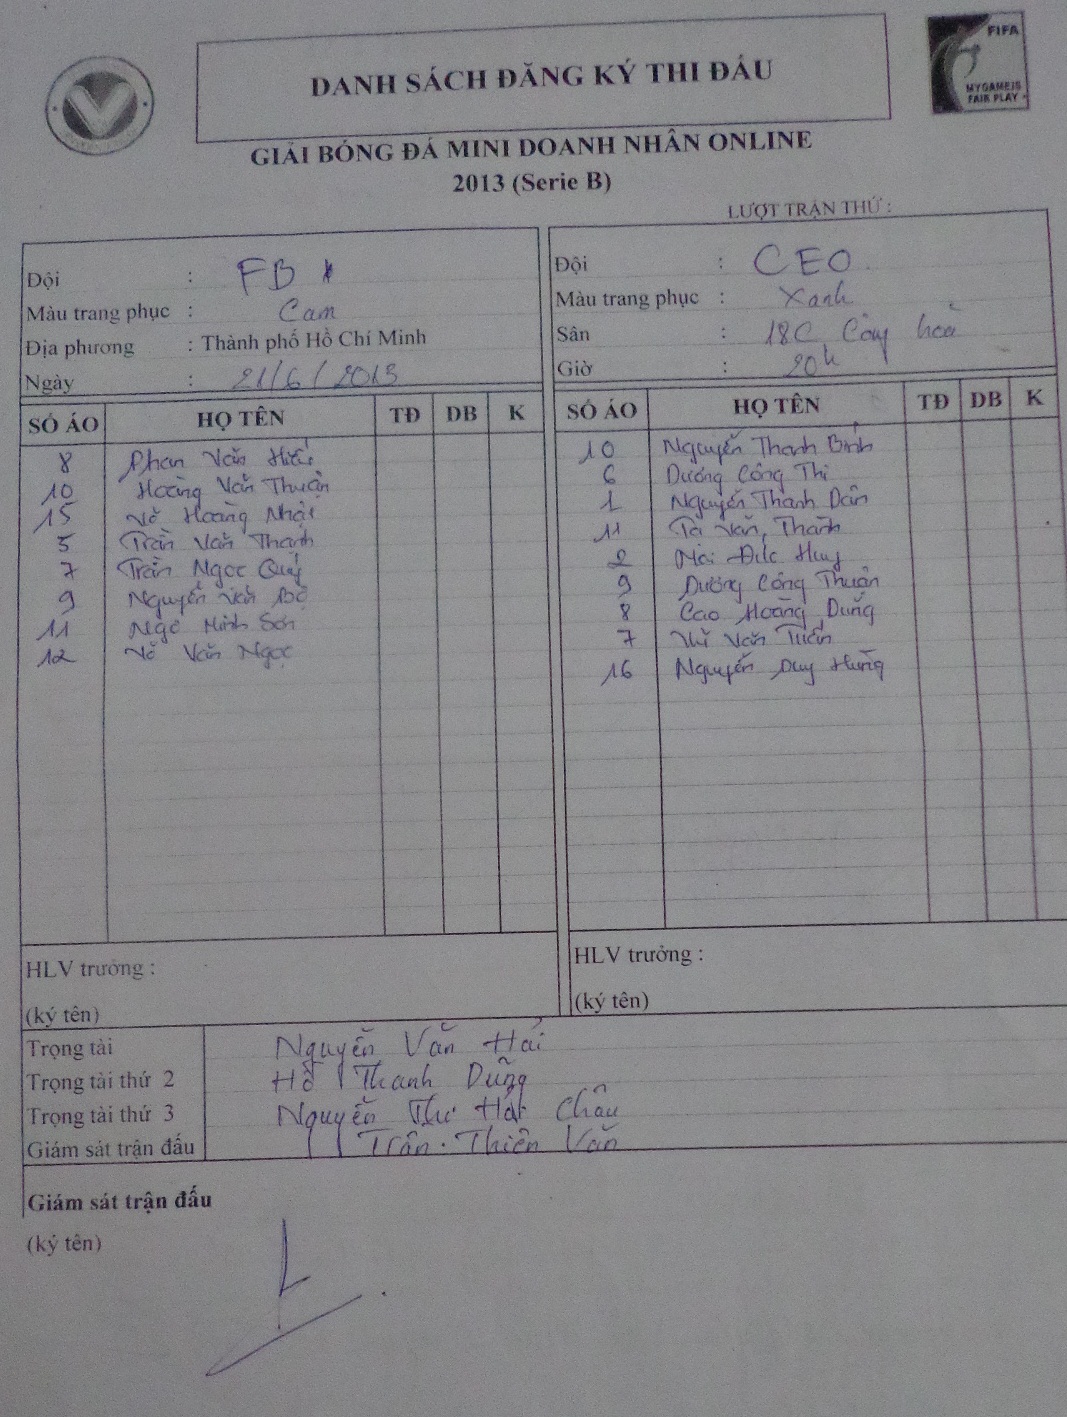 DANH SÁCH ĐĂNG KÝ THI ĐẤU
FIFA
MYGAMEIS
FAIR PLAY
GIẢI BÓNG ĐÁ MINI DOANH NHÂN ONLINE
2013 (Serie B)
LƯỢT TRẬN THỨ :
Đội : FB
Màu trang phục : Cam
Địa phương : Thành phố Hồ Chí Minh
Ngày : 21/6/2013
SỐ ÁO HỌ TÊN TĐ DB K
8 Phan Văn Hiếu
10 Hoàng Văn Thuận
15 Võ Hoàng Nhật
5 Trần Văn Thanh
7 Trần Ngọc Quý
9 Nguyễn Văn
11 Ngô Minh Sơn
12 Võ Văn Ngọc
HLV trưởng :
(ký tên)
Đội : CEO
Màu trang phục : Xanh
Sân : 18C Cộng hoà
Giờ : 20h
SỐ ÁO HỌ TÊN TĐ DB K
10 Nguyễn Thanh Bình
6 Dương Công Thi
1 Nguyễn Thanh Dân
11 Tạ Văn Thành
2 Mai Đức Huy
9 Dương Công Thuận
8 Cao Hoàng Dũng
7 Văn Tuấn
16 Nguyễn Duy Hưng
HLV trưởng :
(ký tên)
Trọng tài Nguyễn Văn Hải
Trọng tài thứ 2 Hồ Thanh Dũng
Trọng tài thứ 3 Nguyễn Thư Hát Châu
Giám sát trận đấu Trần Thiên Văn
Giám sát trận đấu
(ký tên)